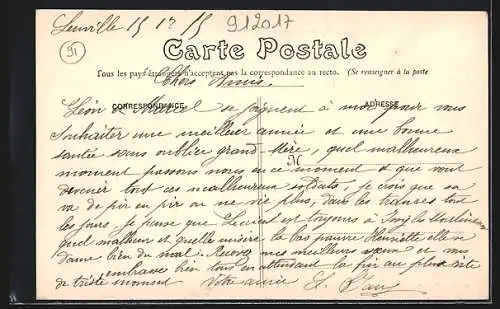 Leuville 15 12 15
912017
91
Carte Postale
Tous les pays étrangers n'acceptent pas la correspondance au recto. (Se renseigner à la poste
Chers Amis.
CORRESPONDANCE
ADRESSE
Léon Marcel se joignent à moi pour vous
souhaiter une meilleur année et une bonne
santée sans oublier grand-Mère, quel malheureux
M
moment passons nous en ce moment que vont
devenir tout ces malheureux soldats, je crois que sa
va de pir en pir on ne vie plus, dans les tous
les jours. Je pense que est toujours à
quel malheur et quelle misère la bas pauvre Henriette elle se
donne bien du mal. Recevez mes meilleurs et vous
embrasse bien tous en attendant la fin au plus vite
de triste moment Votre amie